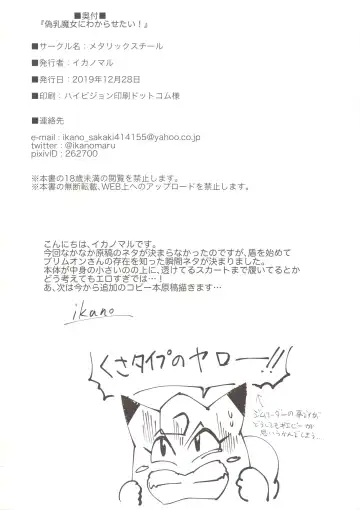 ■奥付■
『偽乳魔女にわからせたい！』
■サークル名：メタリックスチール
■発行者：イカノマル
■発行日：2019年12月28日
■印刷：ハイビジョン印刷ドットコム様
■連絡先
e-mail : ikano_sakaki414155@yahoo.co.jp
twitter : @ikanomaru
pixivID : 262700
※本書の18歳未満の閲覧を禁止します。
※本書の無断転載、WEB上へのアップロードを禁止します。
こんにちは、イカノマルです。
今回なかなか原稿のネタが決まらなかったのですが、盾を始めて
ブリムオンさんの存在を知った瞬間ネタが決まりました。
本体が中身の小さいのの上に、透けてるスカートまで履いてるとか
どう考えてもエロすぎでは…！
あ、次は今から追加のコピー本原稿描きます…
ikano
くさタイプのヤロー！！
ジムリーダーの事ですが
どうしても